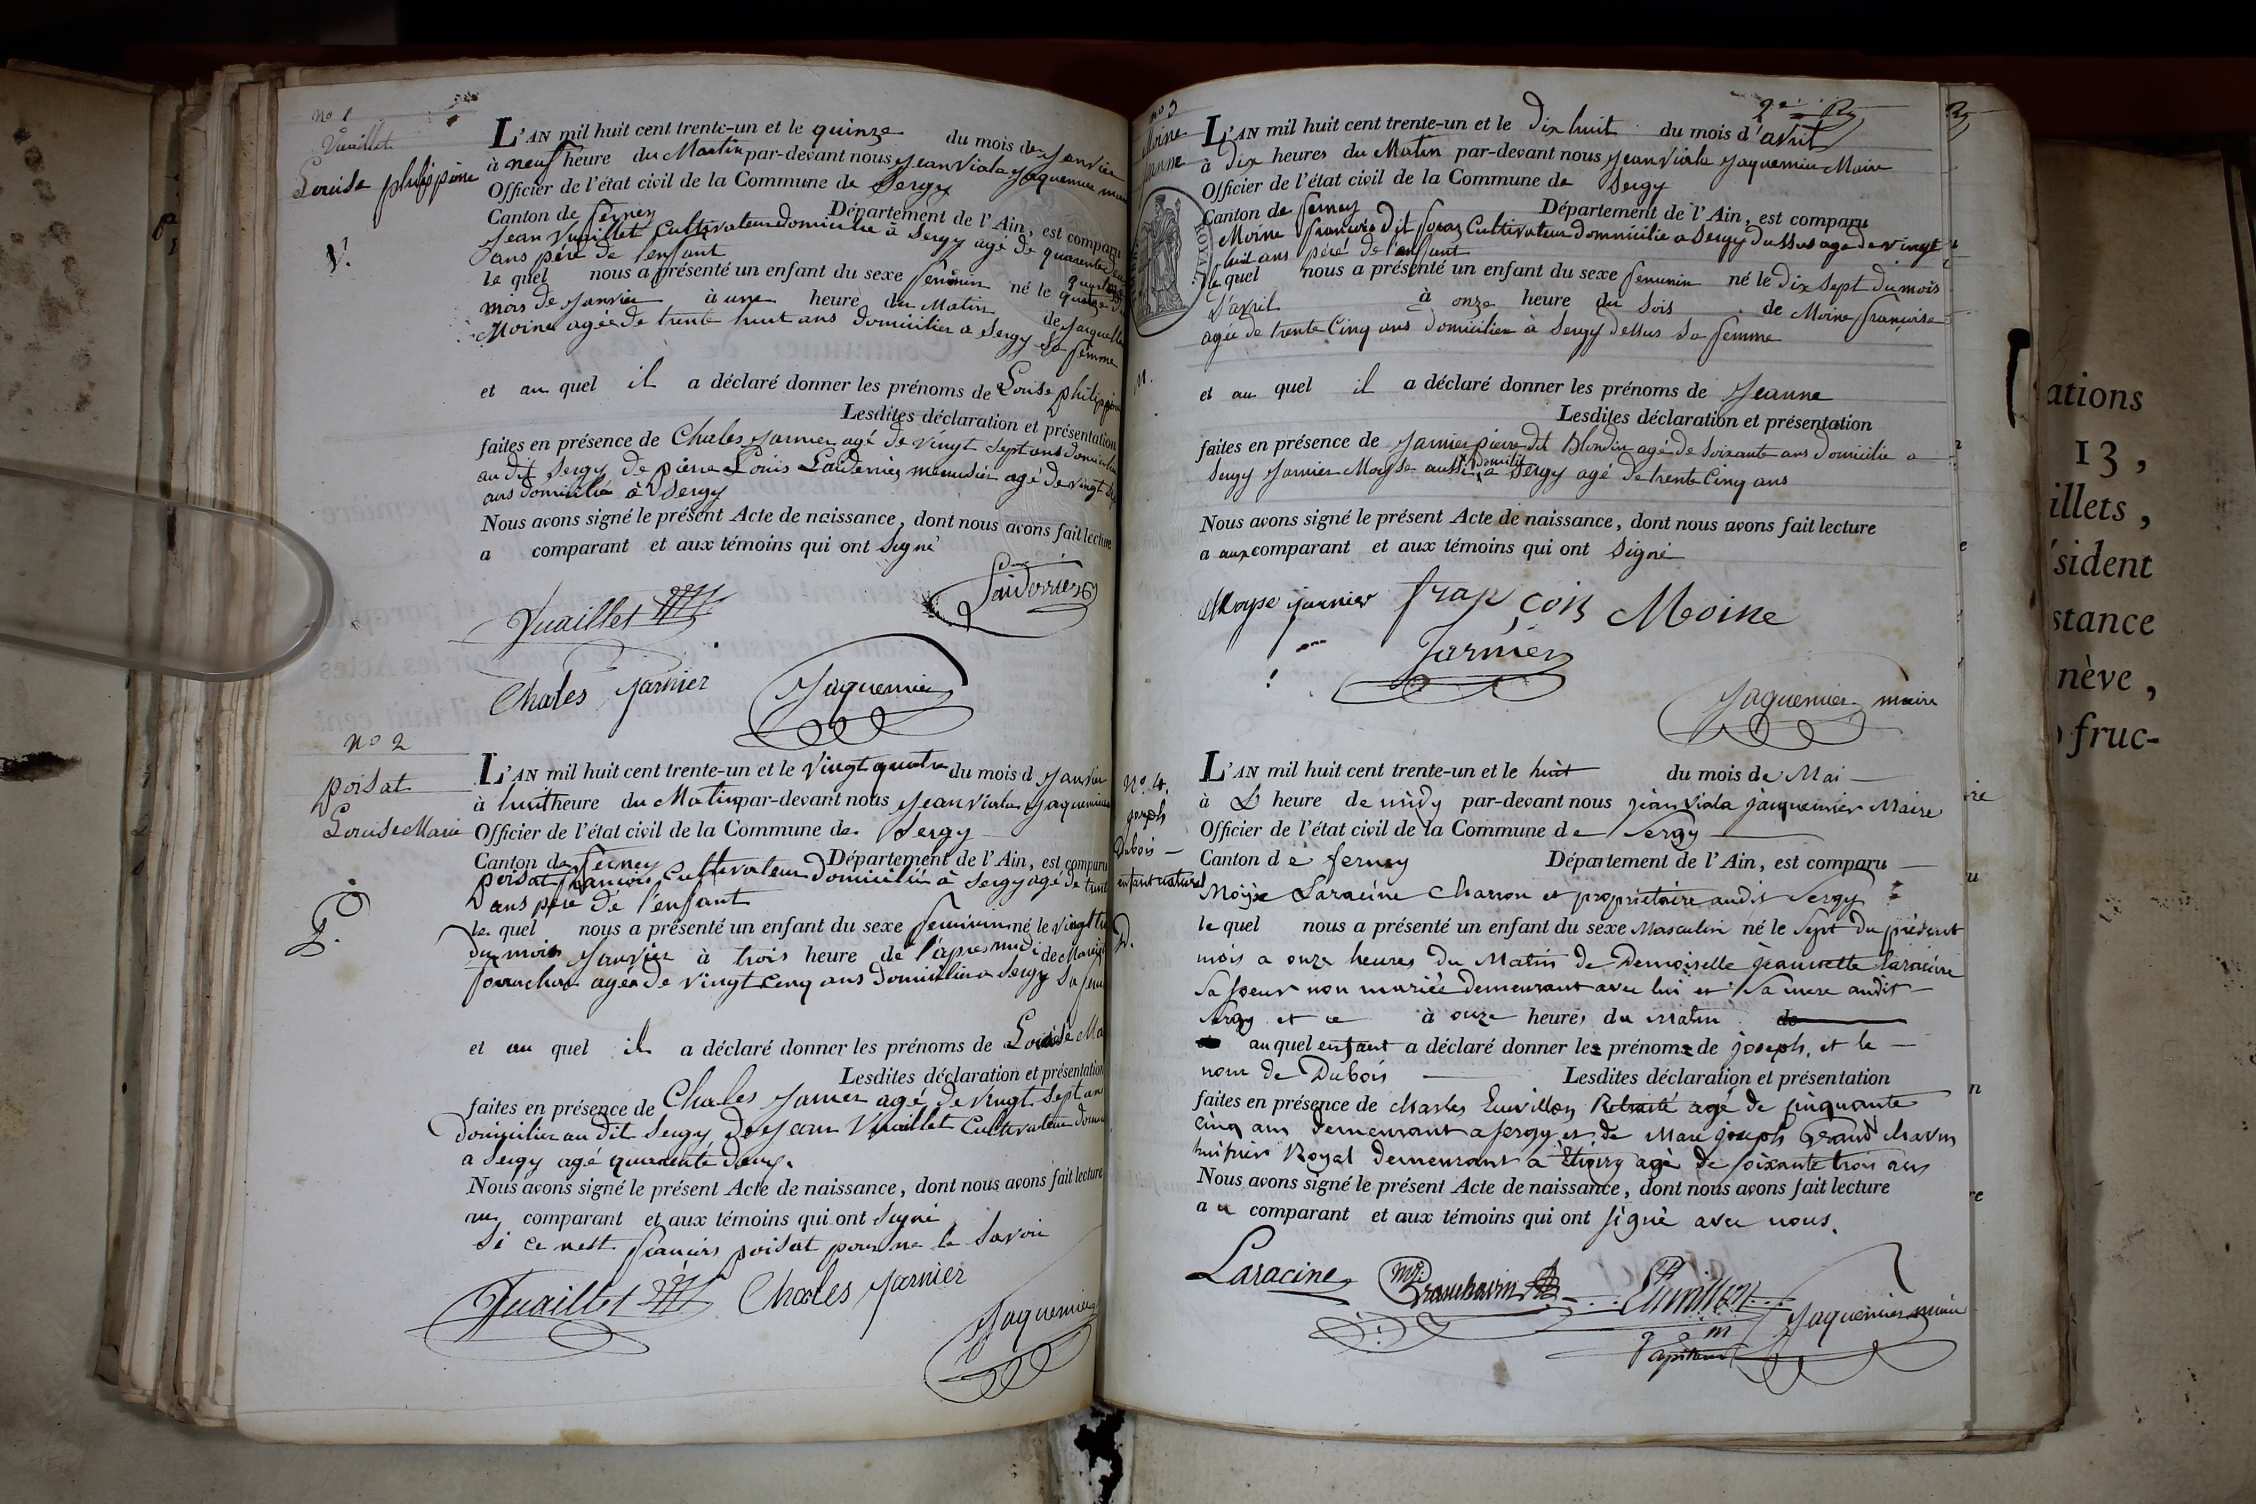 no 1
Vuaillet
Louise philippine
V.
L'AN mil huit cent trente-un et le quinze du mois de Janvier
à neuf heure du Matin par-devant nous Jean Viala Jaquemier
Officier de l'état civil de la Commune de Sergy
Canton de ferney Département de l'Ain, est comparu
Jean Vuaillet Cultivateur domicilié à Sergy agé de quarente
ans père de l'enfant
le quel nous a présenté un enfant du sexe feminin né le
mois de Janvier à une heure du Matin de Jacqueline
Moine agée de trente huit ans domicilier a Sergy Sa femme
et au quel il a déclaré donner les prénoms de Louise philippine
Lesdites déclaration et présentation
faites en présence de Charles Jarnier agé de vingt Sept ans domicilié
au dit Sergy de pierre Louis Laiderrier menusier agé de vingt
ans domicilié à Sergy
Nous avons signé le présent Acte de naissance, dont nous avons fait lecture
a comparant et aux témoins qui ont Signé
Vuaillet
Laiderrier
Chales Jarnier
Jaquemier
no 2
poisat
Louise Marie
L'AN mil huit cent trente-un et le vingt quatre du mois d Janvier
à huit heure du Matin par-devant nous Jean Viala Jaquemier
Officier de l'état civil de la Commune de Sergy
Canton de ferney Département de l'Ain, est comparu
poisat francois Cultivateur domicilié à Sergy agé de trente
ans père de l'enfant
le quel nous a présenté un enfant du sexe feminin né le vingt
du mois Janvier à trois heure de l'apres midi de
agée de vingt cenq ans domicilier a Sergy Sa
et au quel il a déclaré donner les prénoms de Louise Ma
Lesdites déclaration et présentation
faites en présence de Chales Jarnier agé de vingt Sept ans
domicilier au dit Sergy de Jean Vuaillet Cultivateur
a Sergy agé quarente deux.
Nous avons signé le présent Acte de naissance, dont nous avons fait lecture
au comparant et aux témoins qui ont Signé
Si ce nest francois poisat pour ne le Savoir
Vuaillet Chales Jarnier
Jaquemier
no 3
Moine
Jeanne
M.
ROYAL
L'AN mil huit cent trente-un et le Dix huit du mois d'avril
à Dix heures du Matin par-devant nous Jean Viala Jaquemier Maire
Officier de l'état civil de la Commune de Sergy
Canton de ferney Département de l'Ain, est comparu
Moine francois dit Cultivateur domicilié a Sergy Dessus agé de vingt
huit ans père de l'enfant
le quel nous a présenté un enfant du sexe feminin né le Dix Sept du mois
D'avril à onze heure du Soir de Moine françoise
agée de trente Cinq ans domicilier à Sergy dessus Sa femme
et au quel il a déclaré donner les prénoms de Jeanne
Lesdites déclaration et présentation
faites en présence de Jarnier pierre dit Blondin agé de Soixante ans domicilié a
Sergy Jarnier Moyse aussi domicilié a Sergy agé de trente Cinq ans
Nous avons signé le présent Acte de naissance, dont nous avons fait lecture
a aux comparant et aux témoins qui ont Signé
Moyse jarnier françois Moine
Jarnier
Jaquemier maire
No. 4.
joseph
Dubois
enfant naturel
D.
L'AN mil huit cent trente-un et le huit du mois de Mai
à heure de midy par-devant nous jean viala jaquemier Maire
Officier de l'état civil de la Commune de Sergy
Canton de ferney Département de l'Ain, est comparu
Moyse Laracine charron et propriétaire audit Sergy
le quel nous a présenté un enfant du sexe Masculin né le Sept du présent
mois a onze heures du Matin de Demoiselle jeannette Laracine
Sa soeur non mariée demeurant avec lui et Sa mere audit
Sergy et ce à onze heures du Matin de
au quel enfant a déclaré donner les prénoms de joseph, et le
nom de Dubois Lesdites déclaration et présentation
faites en présence de charles Retraité agé de cinquante
cinq ans demeurant a Sergy et de Marc joseph Grand chavin
huissier Royal demeurant a Thoiry agé de soixante trois ans
Nous avons signé le présent Acte de naissance, dont nous avons fait lecture
au comparant et aux témoins qui ont signé avec nous.
Laracine
Jaquemier maire
ations
13,
illets,
sident
stance
nève,
fruc-